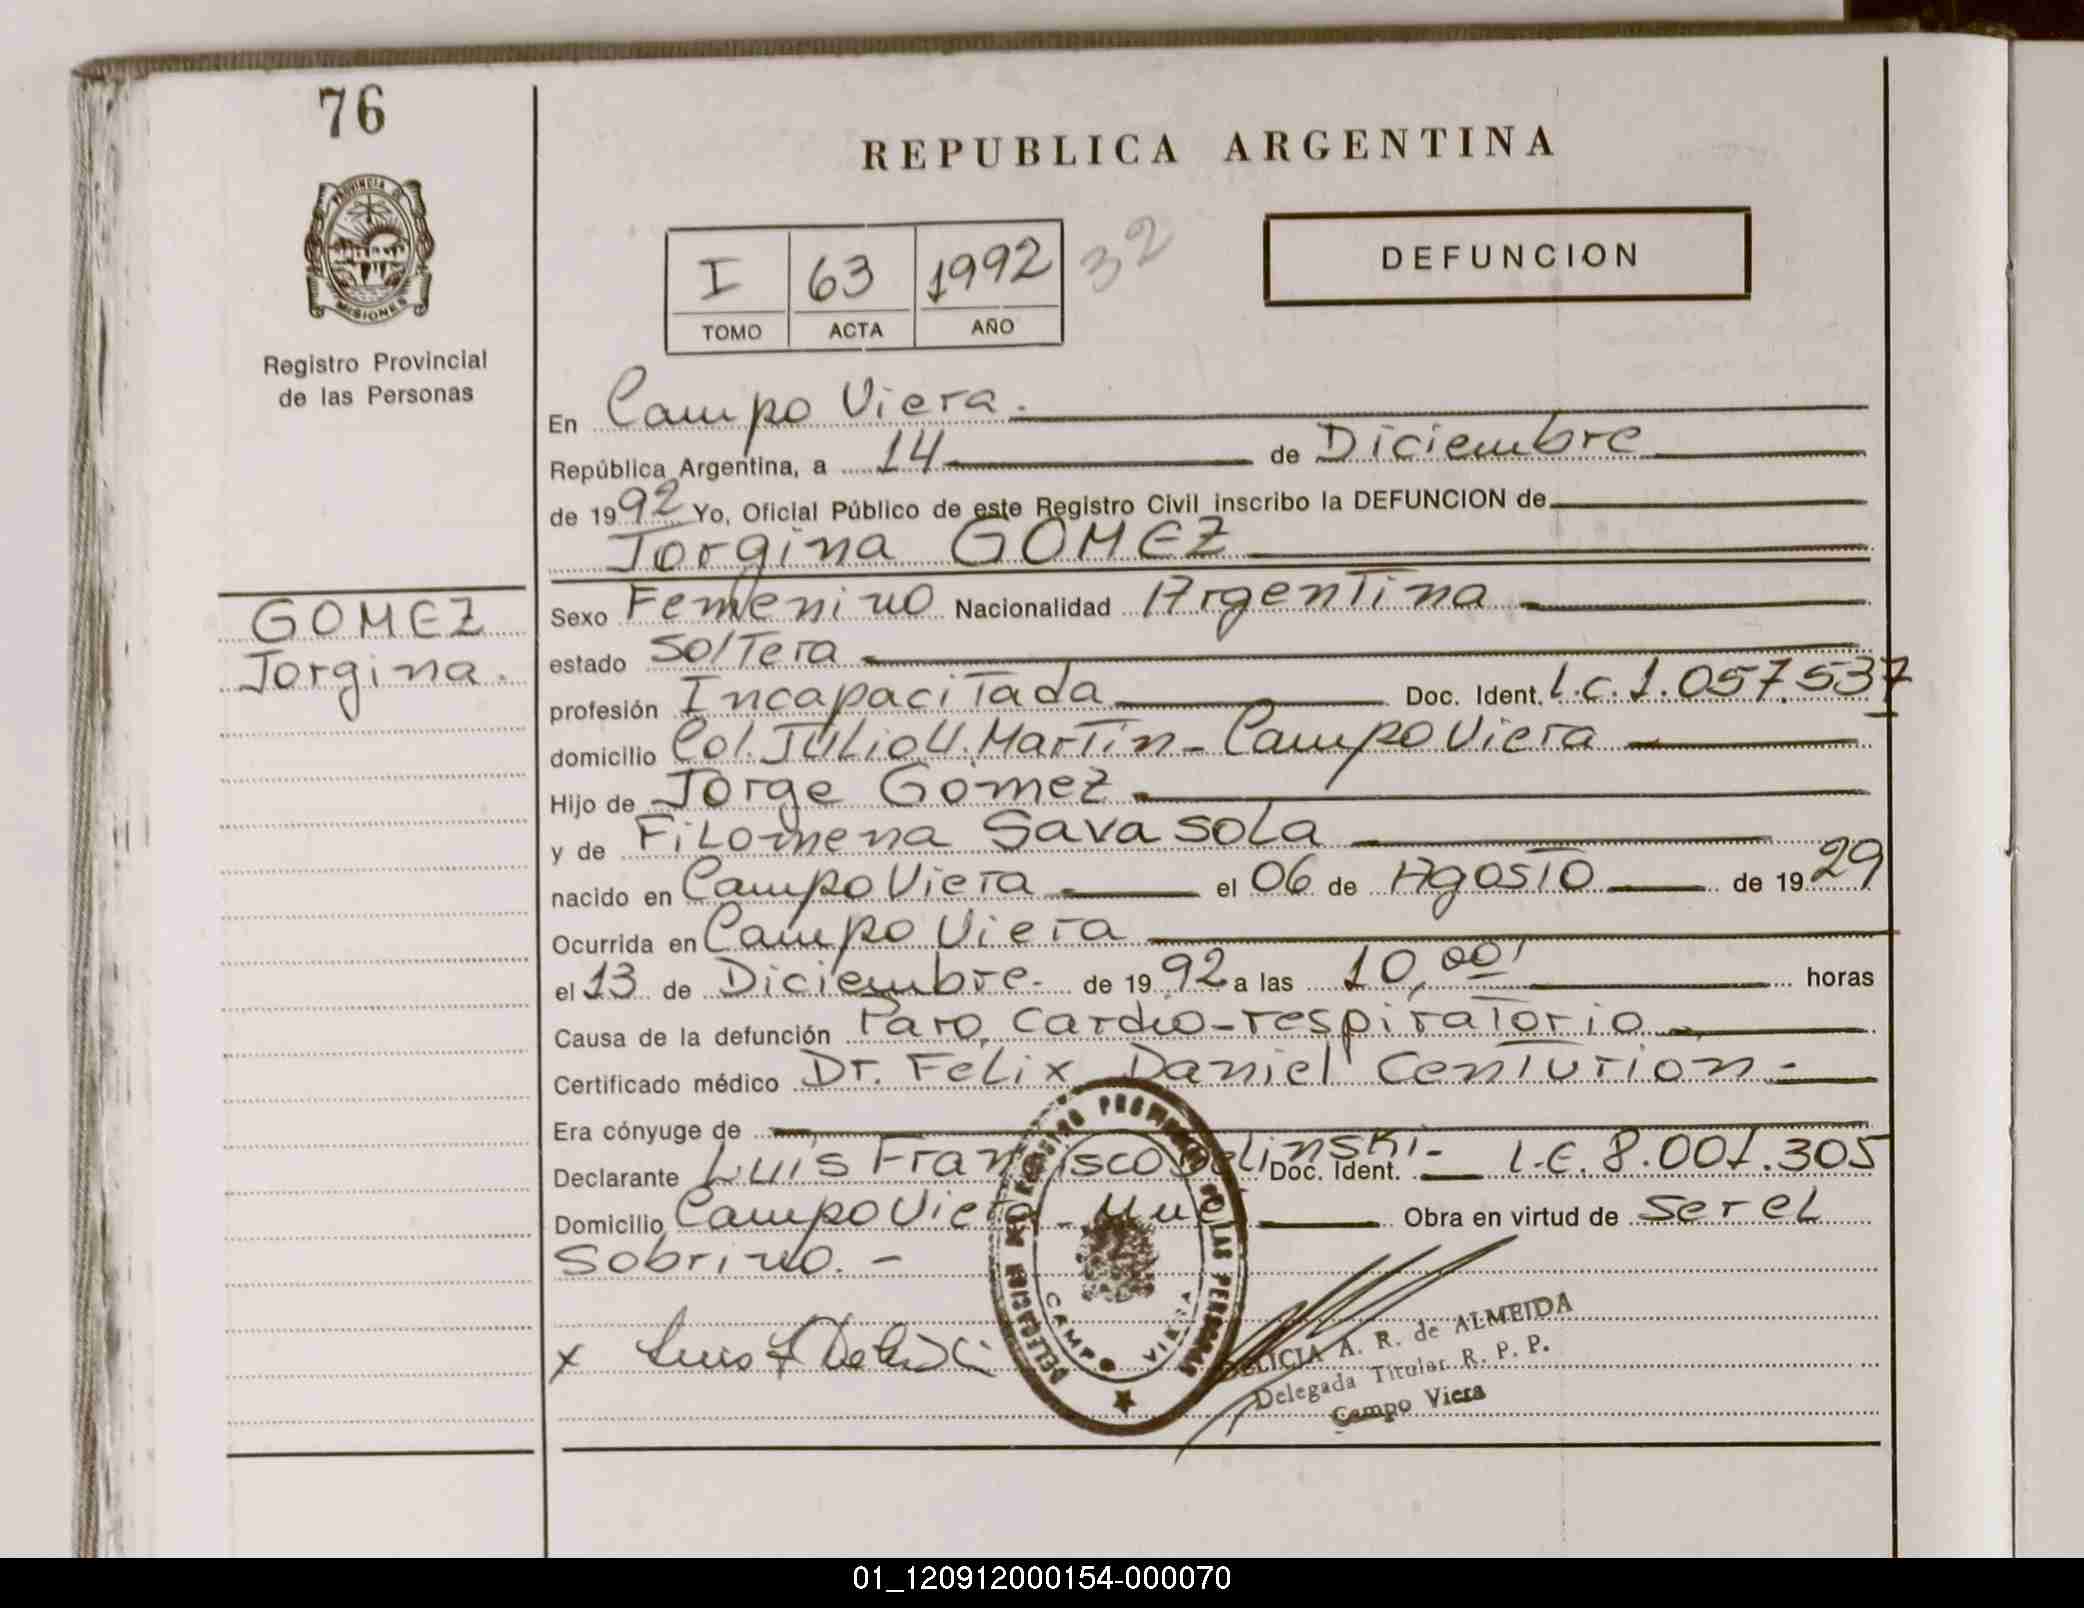 76
REPUBLICA ARGENTINA
PROVINCIA D
MISIONES
Registro Provincial
de las Personas
I 63 1992 32
TOMO ACTA AÑO
DEFUNCION
En Campo Viera.
República Argentina, a 14 de Diciembre
de 1992 Yo, Oficial Público de este Registro Civil inscribo la DEFUNCION de
Jorgina GOMEZ
GOMEZ
Jorgina.
Sexo Femenino Nacionalidad Argentina
estado Soltera
profesión Incapacitada Doc. Ident. L.C. 1.057.537
domicilio Col. Julio U. Martin - Campo Viera
Hijo de Jorge Gomez
y de Filomena Savasola
nacido en Campo Viera el 06 de Agosto de 1929
Ocurrida en Campo Viera
el 13 de Diciembre de 1992 a las 10,00 horas
Causa de la defunción Paro cardio-respiratorio
Certificado médico Dr. Felix Daniel Centurion -
Era cónyuge de
Declarante Luis Francisco Delinski - Doc. Ident. L.E. 8.001.305
Domicilio Campo Viera - Obra en virtud de ser el
Sobrino. -
DELEGACION DEL REGISTRO PROVINCIAL DE LAS PERSONAS
CAMPO VIERA
DELICIA A. R. de ALMEIDA
Delegada Titular R. P. P.
Campo Viera
01_120912000154-000070